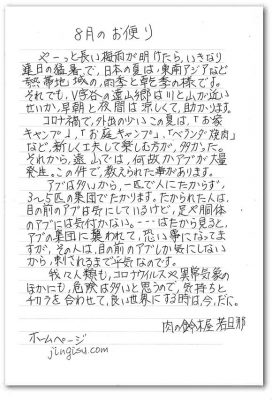 8月のお便り
やーっと長い梅雨が明けたら、いきなり
連日の猛暑で、日本の夏は、東南アジアなど
熱帯地域の、雨季と乾季の様です。
それでも、V字谷の遠山郷は川と山が近い
せいか、早朝と夜間は涼しくて、助かります。
コロナ禍で、外出の少いこの夏は、「お家
キャンプ」、「お庭キャンプ」、「ベランダ焼肉」
など、新しく工夫して楽しむ方が、多かった。
それから、遠山では、何故かアブが大量
発生。この件で、教えられた事があります。
アブは多いから、一匹で人にたからず、
3〜5匹の集団でたかります。たかられた人は、
目の前のアブは気にしているけど、足や胴体
のアブには気付かない。……はたから見ると、
アブの集団に襲われて、恐い事になってま
すが、その人は、目の前のアブしか気にしない
から、刺されるまで平気なのです。
我々人類も、コロナウイルスや異常気象の
ほかにも、危険は多いと思うので、気持ちと
チカラを合わせて、良い世界にする時は、今、だに。
肉の鈴木屋 若旦那
ホームページ
jingisu.com